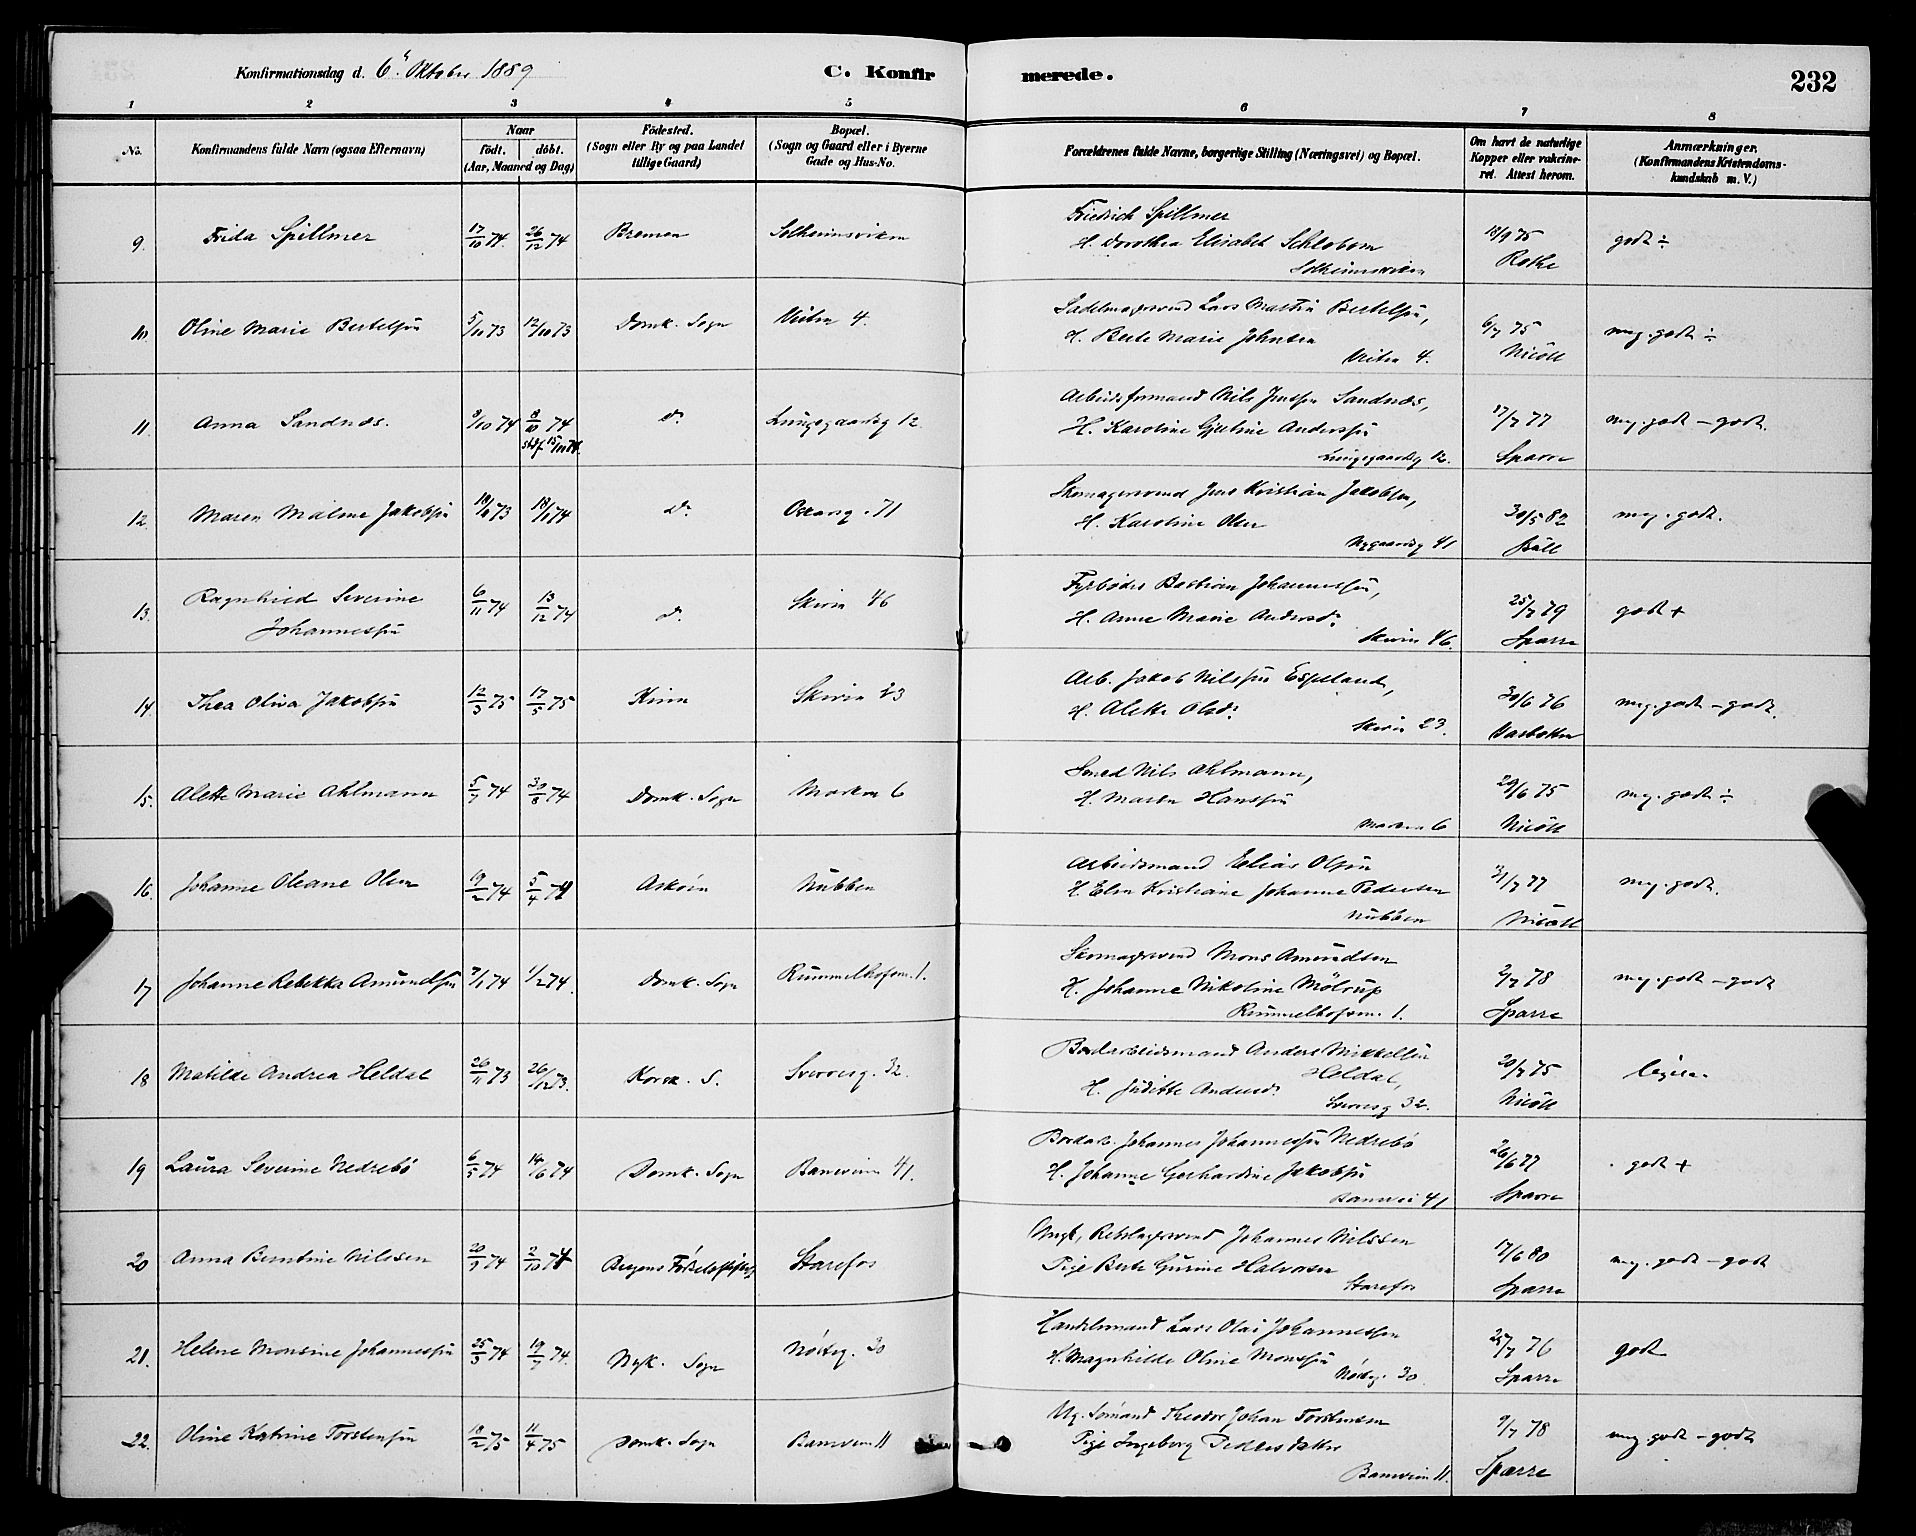 Konfirmationsdag d. 6 Oktober 1889
C. Konfirmerede.
232
1 2 3 4 5 6 7 8
No.
Konfirmandens fulde Navn (ogsaa Efternavn)
Naar
födt. döbt.
(Aar, Maaned og Dag)
Födested.
(Sogn eller By og paa Landet
tillige Gaard)
Bopæl.
(Sogn og Gaard eller i Byerne
Gade og Hus-No.
Forældrenes fulde Navne, borgerlige Stilling (Næringsvei) og Bopæl.
Om havt de naturlige
Kopper eller vakcine-
ret. Attest herom.
Anmærkninger.
(Konfirmandens Kristendoms-
kundskab m. V.)
9. Frida Spillmer 17/10 74. 26/12 74 Bremen Solheimsviken
Friedrich Spillmer
H. Dorothea Elisabet Schlobom
Solheimsviken
18/9 75
Rothe
godt ÷
10. Oline Marie Bertelsen 5/10 73 12/10 73 Domk. Sogn Viten 4.
Sadelmagersvend Lars Martin Bertelsen,
H. Berte Marie Johnsen
Viten 4.
6/7 75
Nicoll
meg. godt ÷
11. Anna Sandnæs. 3/10 74 8/10 74 do Lungegaardsg 12
stdf. 15/11 74.
Arbeidsformand Nils Jensen Sandnæs,
H. Karoline Gjertine Anderssen
Lungegaardsg 12.
17/7 77
Sparre
meg. godt – godt.
12. Maren Malene Jakobsen 18/11 73 18/1 74 do Oscarsg. 71
Skomagersvend Jens Kristian Jakobsen,
H. Karoline Olsen
Nygaardsg 41
30/5 82
Bull
meg. godt.
13. Ragnhild Severine
Johannessen
6/11 74 13/12 74 do Skiven 46
Fyrböder Bastian Johannessen,
H. Anne Marie Andersdr
Skiven 46.
25/7 79
Sparre
godt +
14. Thea Oliva Jakobsen 12/3 75 17/5 75 Kinn Skiven 23
Arb. Jakob Nilssen Espeland,
H. Alette Olsdr
Skiven 23.
30/6 76
meg. godt – godt.
15. Alette Marie Ahlmann 5/7 74 30/8 74 Domk. Sogn Marken 6
Smed Nils Ahlmann,
H. Marta Hanssen
Marken 6
29/6 75
Nicoll
meg. godt ÷
16. Johanne Oleane Olsen 19/2 74 5/4 74 Asköen Nubben
Arbeidsmand Elias Olsen
H. Elen Kristiane Johanne Pedersen
Nubben
31/7 77
Nicoll
meg. godt.
17 Johanne Rebekka Amundsen 7/1 74 1/2 74. Domk. Sogn Rummelhofsm. 1.
Skomagersvend Mons Amundsen
H. Johanne Nikoline Möltrup
Rummelhofsm. 1.
2/7 78
Sparre
meg. godt – godt
18 Matilde Andrea Heldal 26/11 73 26/12 73. Korsk. S. Sverresg. 32.
Bodarbeidsmand Anders Mikkelsen
Heldal,
H. Juditte Andersdr
Sverresg 32.
20/7 75
Nicoll
19 Laura Severine Nedrebö 6/5 74 14/6 74 Domk. Sogn Baneveien 41.
Bordarb. Johannes Johannessen Nedrebö
H. Johanne Gerhardine Jakobsen
Banevei 41
26/6 77
Sparre
godt +
20 Anna Berntine Nilssen 20/9 74 2/10 74 Bergens Födselsstiftelse Starefos
Ungk. Rebslagersvend Johannes Nilssen
Pige Berte Gurine Halvorsen
Starefos
17/6 80
Sparre
meg. godt – godt
21. Helene Monsine Johannessen 25/3 74 19/7 74. Nyk. Sogn Nösteg. 30
Handelsmand Lars Olai Johannessen
H. Magnhilde Oline Monssen
Nösteg. 30
25/7 76
Sparre
godt
22. Oline Katrine Torstensen 18/2 75 11/4 75 Domk. Sogn Baneveien 11
Ug. Sömand Theodor Johan Torstensen
Pige Ingeborg Pedersdatter
Baneveien 11.
9/7 78
Sparre
meg. godt – godt